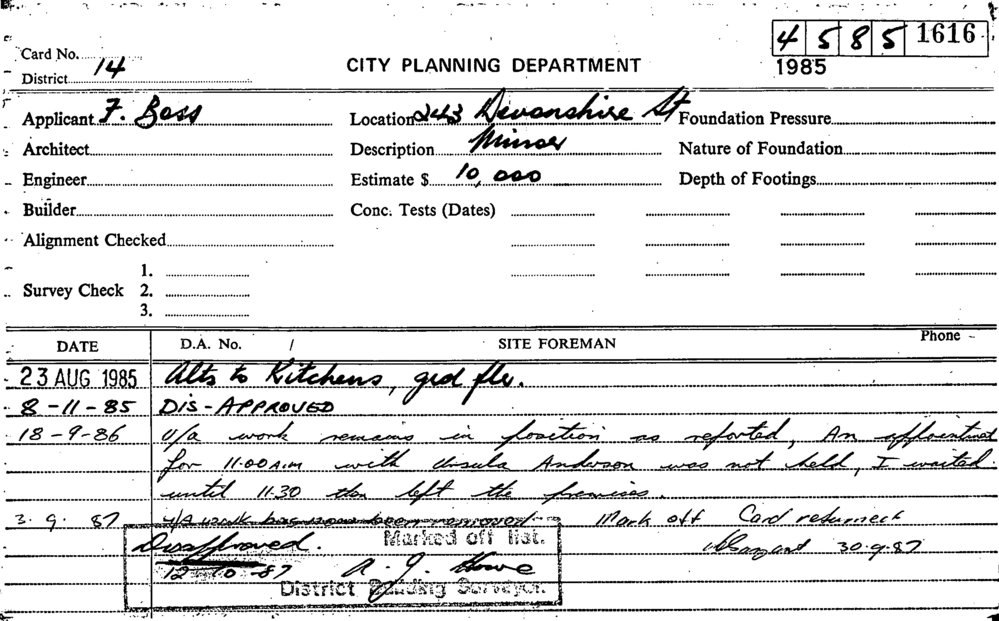 4 5 8 5 1616
Card No.
District 14
CITY PLANNING DEPARTMENT
1985
Applicant F. Boss
Location 243 Devonshire St
Foundation Pressure
Architect
Description Minor
Nature of Foundation
Engineer
Estimate $ 10,000
Depth of Footings
Builder
Conc. Tests (Dates)
Alignment Checked
Survey Check 1.
2.
3.
DATE D.A. No. / SITE FOREMAN Phone
23 AUG 1985 Alts to Kitchens, grd flr.
8-11-85 DIS-APPROVED
18-9-86 U/a work remains in position as reported, An appointment
for 11.00 A.M with Ursula Anderson was not held, I waited
until 11.30 then left the premises.
3. 9. 87 U/a work has now been removed Mark off Card returned
30.9.87
Disapproved. Marked off list.
12-10-87 A. J. Howe
District Building Surveyor.